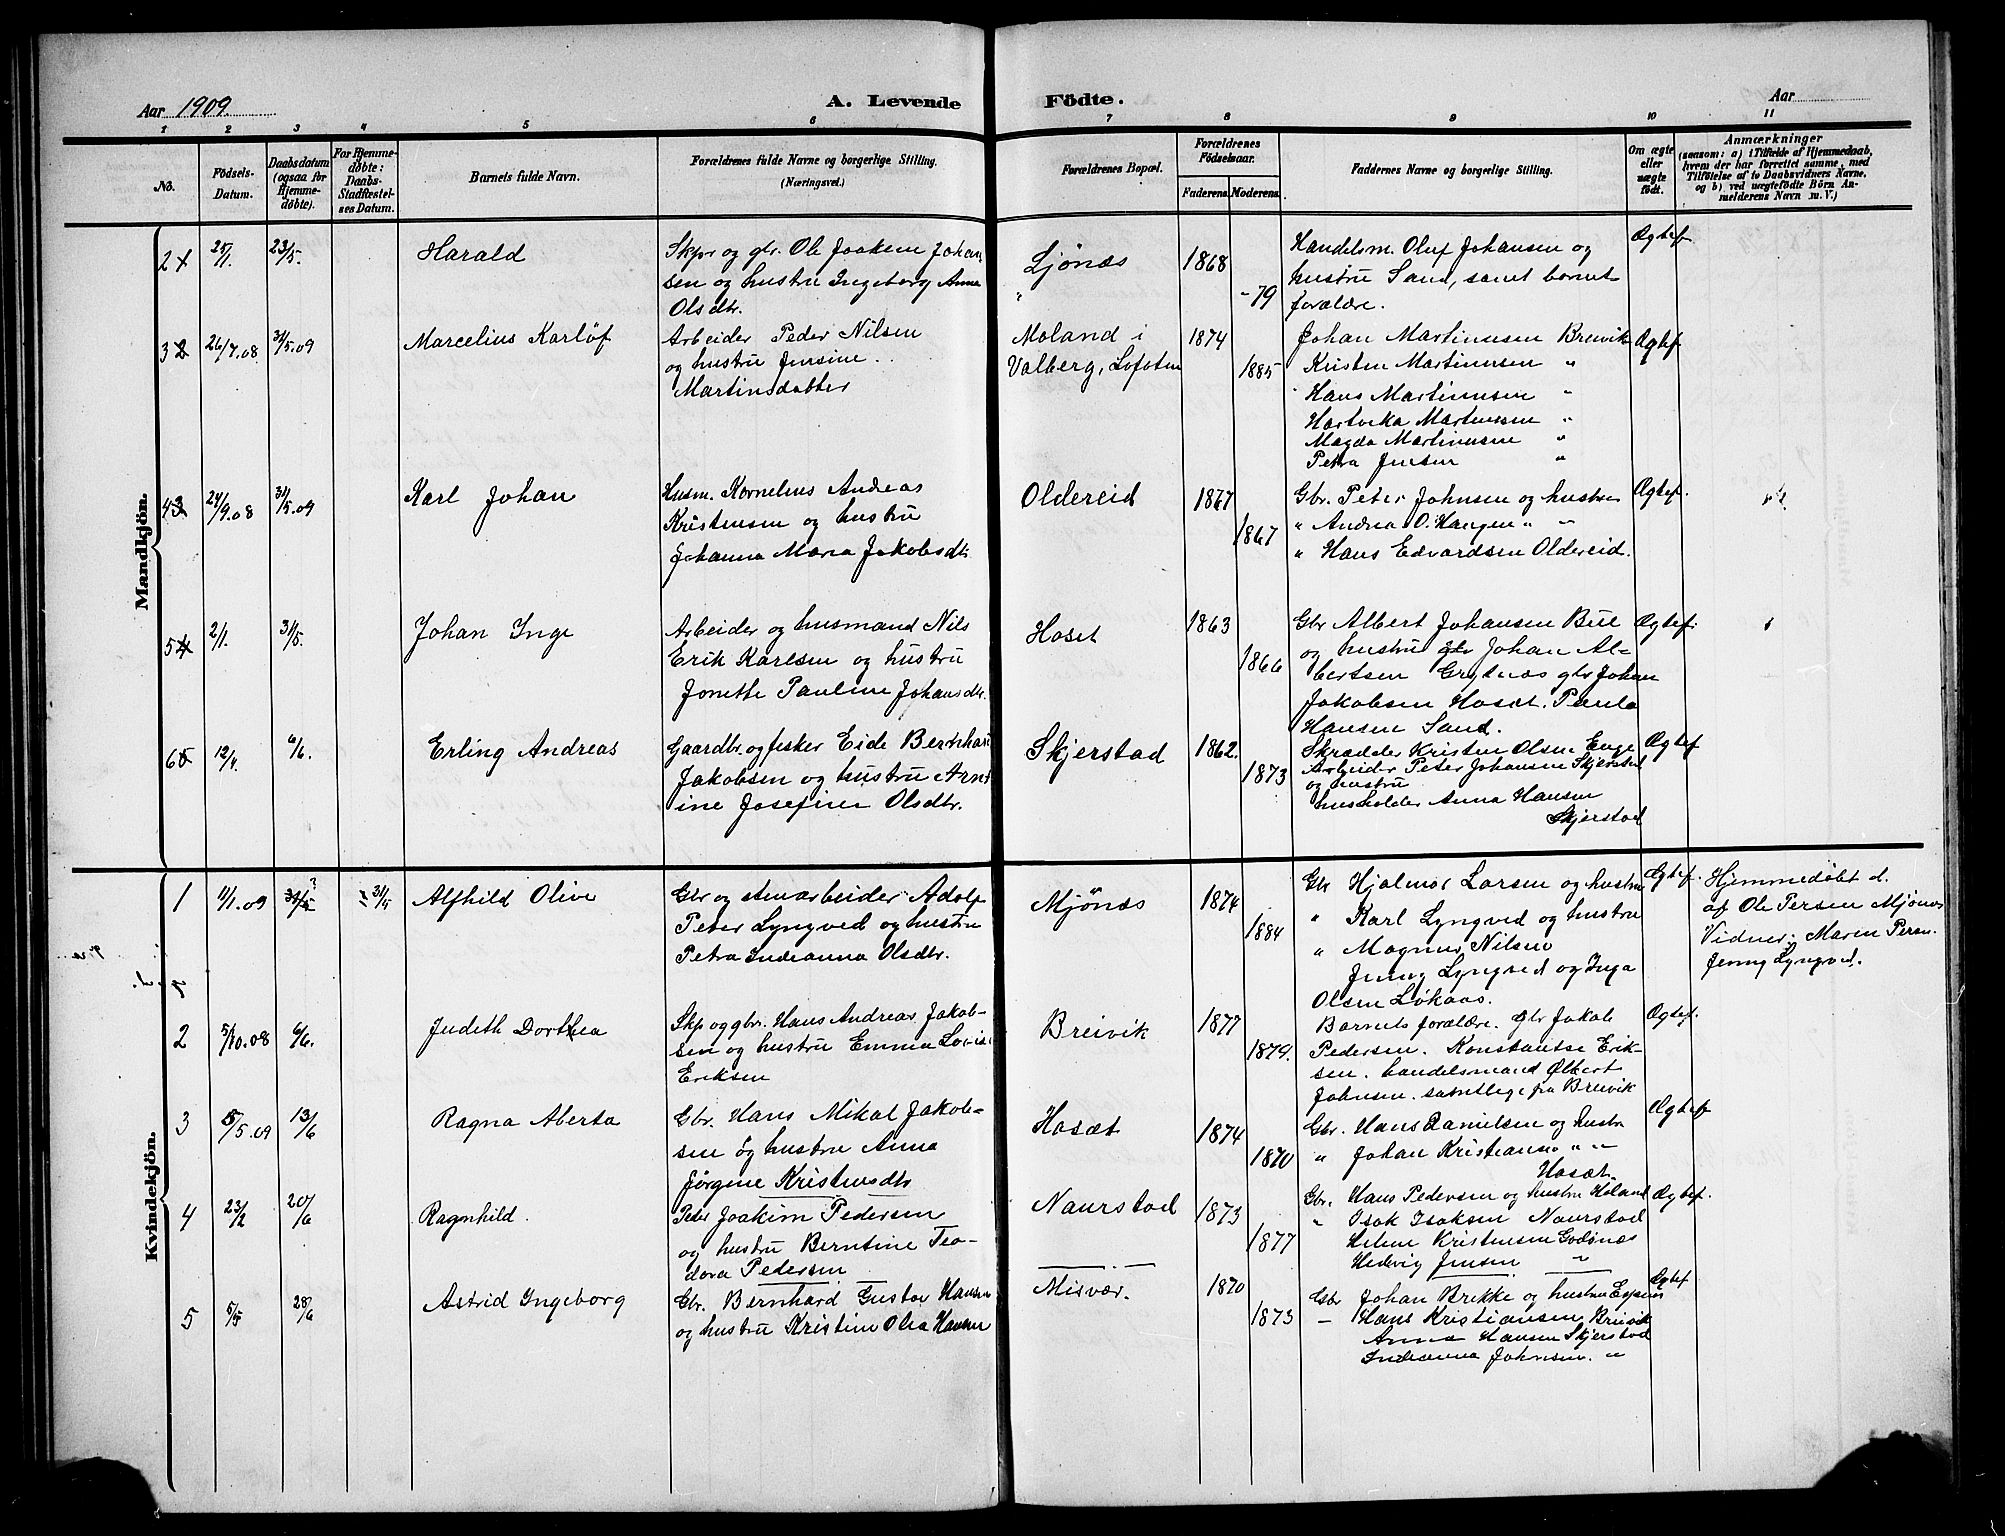 Aar 1909.
A. Levende Födte.
Aar
1 2 3 4 5 6 7 8 9 10 11
No.
Födsels-Datum.
Daabsdatum (ogsaa for Hjemme-døbte).
For Hjemme-døbte: Daabs-Stadfæstel-ses Datum.
Barnets fulde Navn.
Forældrenes fulde Navne og borgerlige Stilling.
(Næringsvei.)
Forældrenes Bopæl.
Forældrenes Födselsaar.
Faderens. Moderens.
Faddernes Navne og borgerlige Stilling.
Om ægte eller uægte født.
Anmærkninger
(saasom: a) i Tilfælde af Hjemmedaab,
hvem der har forrettet samme, med
Tilföielse af to Daabsvidners Navne,
og b) ved uægtefödte Börn An-
melderens Navn m. V.)
Mandkjön.
2 25/1. 23/5. Harald
Skpr og gbr. Ole Joakem Johan
sen og hustru Ingeborg Anna
Olsdtr.
Ljönæs 1868 -79
Handelsm. Oluf Johansen og
hustru Sand, samt barnets
forældre.
Ægtef.
3 26/7.08 31/5.09 Marcelius Karlöf
Arbeider Peder Nilsen
og hustru Jensine
Martinsdatter
Moland i
Valberg, Lofoten
1874 1885
Johan Martinusen Breivik
Kristen Martinusen "
Hans Martinusen "
Hartvika Martinussen "
Magda Martinusen "
Petra Jensen "
Ægtef
4 24/9.08 31/5.09 Karl Johan
Husm. Kornelius Andreas
Kristensen og hustru
Johanna Maria Jakobsdtr.
Oldereid 1867 1867
Gbr. Peter Johnsen og hustru
" Andrea O. Haugen " "
" Hans Edvardsen Oldereid.
Ægtef.
5 2/1. 31/5. Johan Inge
Arbeider og husmand Nils
Erik Karlsen og hustru
Jonette Pauline Johansdtr.
Hoset 1863 1866
Gbr Albert Johansen Bue
og hustru gbr Johan Al-
bertsen Grytnæs gbr Johan
Jakobsen Hoset. Paula
Hansen Sand.
Ægtef.
6 12/4. 6/6. Erling Andreas
Gaardbr. og fisker Eide Bernhard
Jakobsen og hustru Arnt
ine Josefine Olsdtr.
Skjerstad 1862. 1873
Skrædder Kristen Olsen Enge
Arbeider Peter Johansen Skjerstad
og hustru
husholder Anna Hansen
Skjerstad
Ægtef
Kvindekjön.
1 11/1.09 31/5 31/5 Alfhild Olive
Gbr og Anarbeider Adolf
Peter Lyngved og hustru
Petra Indianna Olsdtr.
Mjönæs 1874 1884
Gbr Hjalmar Larsen og hustru
" Karl Lyngved og hustru
" Magnus Nilsen
Jenny Lyngved og Inga
Olsen Løkaas.
Ægtef.
Hjemmedøbt d.
af Ole Persen Mjönæs
Vidner: Maren Persn.
Jenny Lyngved.
2 5/10.08 6/6. Judith Dorthea
Skp og gbr. Hans Andreas Jakob-
sen og hustru Emma Lovise
Eriksen
Breivik 1877 1879.
Barnets forældre. Gbr Jakob
Pedersen. Konstantse Erik-
sen. handelsmand Olbert
Johnsen. samtlige fra Breivik
Ægtef.
3 5/5.09 13/6 Ragna Aberta
Gbr. Hans Mikal Jakob-
sen og hustru Anna
Jørgine Kristensdtr
Hosæt 1874 1870
Gbr. Hans Danielsen og hustru
" Johan Kristiansen " "
Hosæt.
Ægtef
4 23/2 20/6 Ragnhild.
Peder Joakim Pedersen
og hustru Berntine Teo-
dora Pedersen
Naurstad 1873 1877
Gbr. Hans Pedersen og hustru Høland
" Isak Isaksen Naurstad
Helene Kristensen Godønes
Hedvig Jensen "
Ægtef.
5 5/5 28/6 Astrid Ingeborg
Gbr. Bernhard Gustav Hansen
og hustru Kristine Olea Hansen
Misvær. 1870 1873
Gbr Johan Brekke og hustru
– Hans Kristiansen Breivik
Anna Hansen Skjerstad
Indianna Johnsen. "
Ægtef